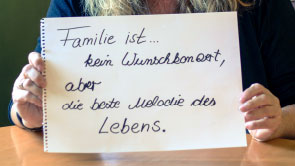 Familie ist...
kein Wunschkonzert,
aber
die beste Melodie des
Lebens.